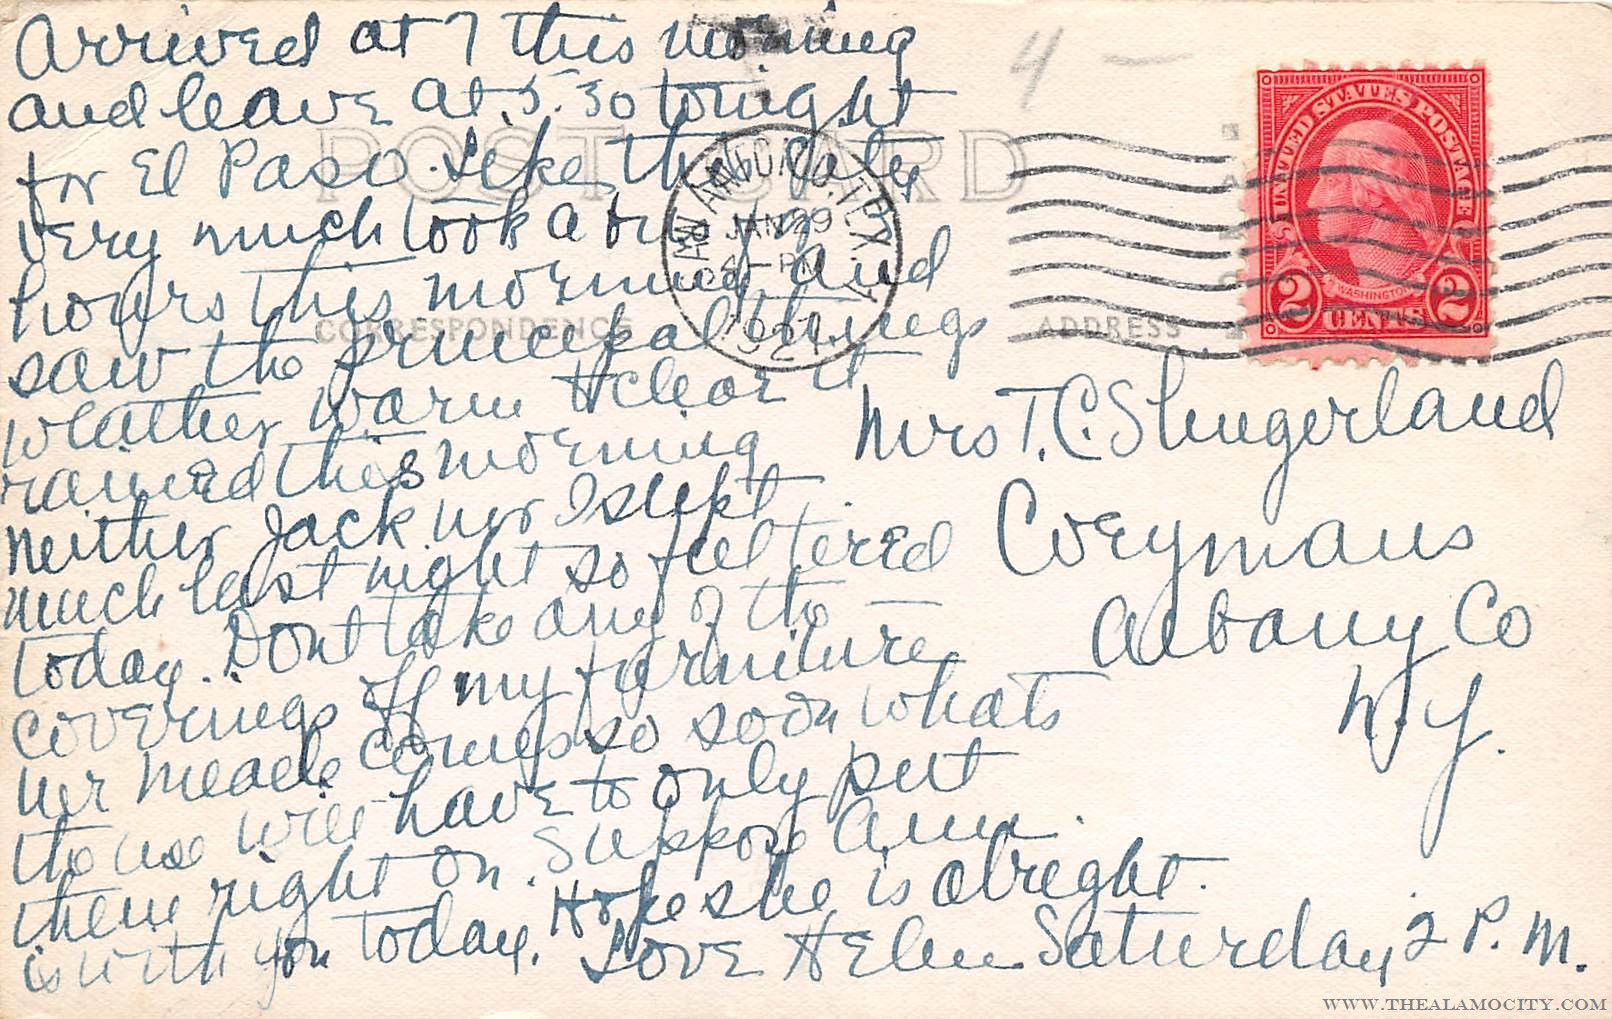 Arrived at 7 this morning
and leave at 5.30 tonight
for El Paso. Like the City
very much look a bus 2
hours this morning and
saw the principal things
weather warm & clear it
rained this morning
Neither Jack nor I slept
much last night so feel tired
today. Dont take any of the
coverings off my furniture
nor meade comes so soon whats
the use will have to only put
them right on. Suppose Ann
is with you today. Hope she is alright.
Love Helen Saturday 2 P.M.
4 —
POST CARD
CORRESPONDENCE
ADDRESS
SAN ANTONIO, TEX.
JAN 29
PM
1927
UNITED STATES POSTAGE
WASHINGTON
2 CENTS 2
Mrs T. C. Slingerland
Coeymans
Albany Co
N.Y.
WWW.THEALAMOCITY.COM